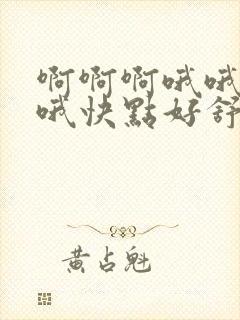 啊啊啊哦哦
哦快點好舒
黄占魁